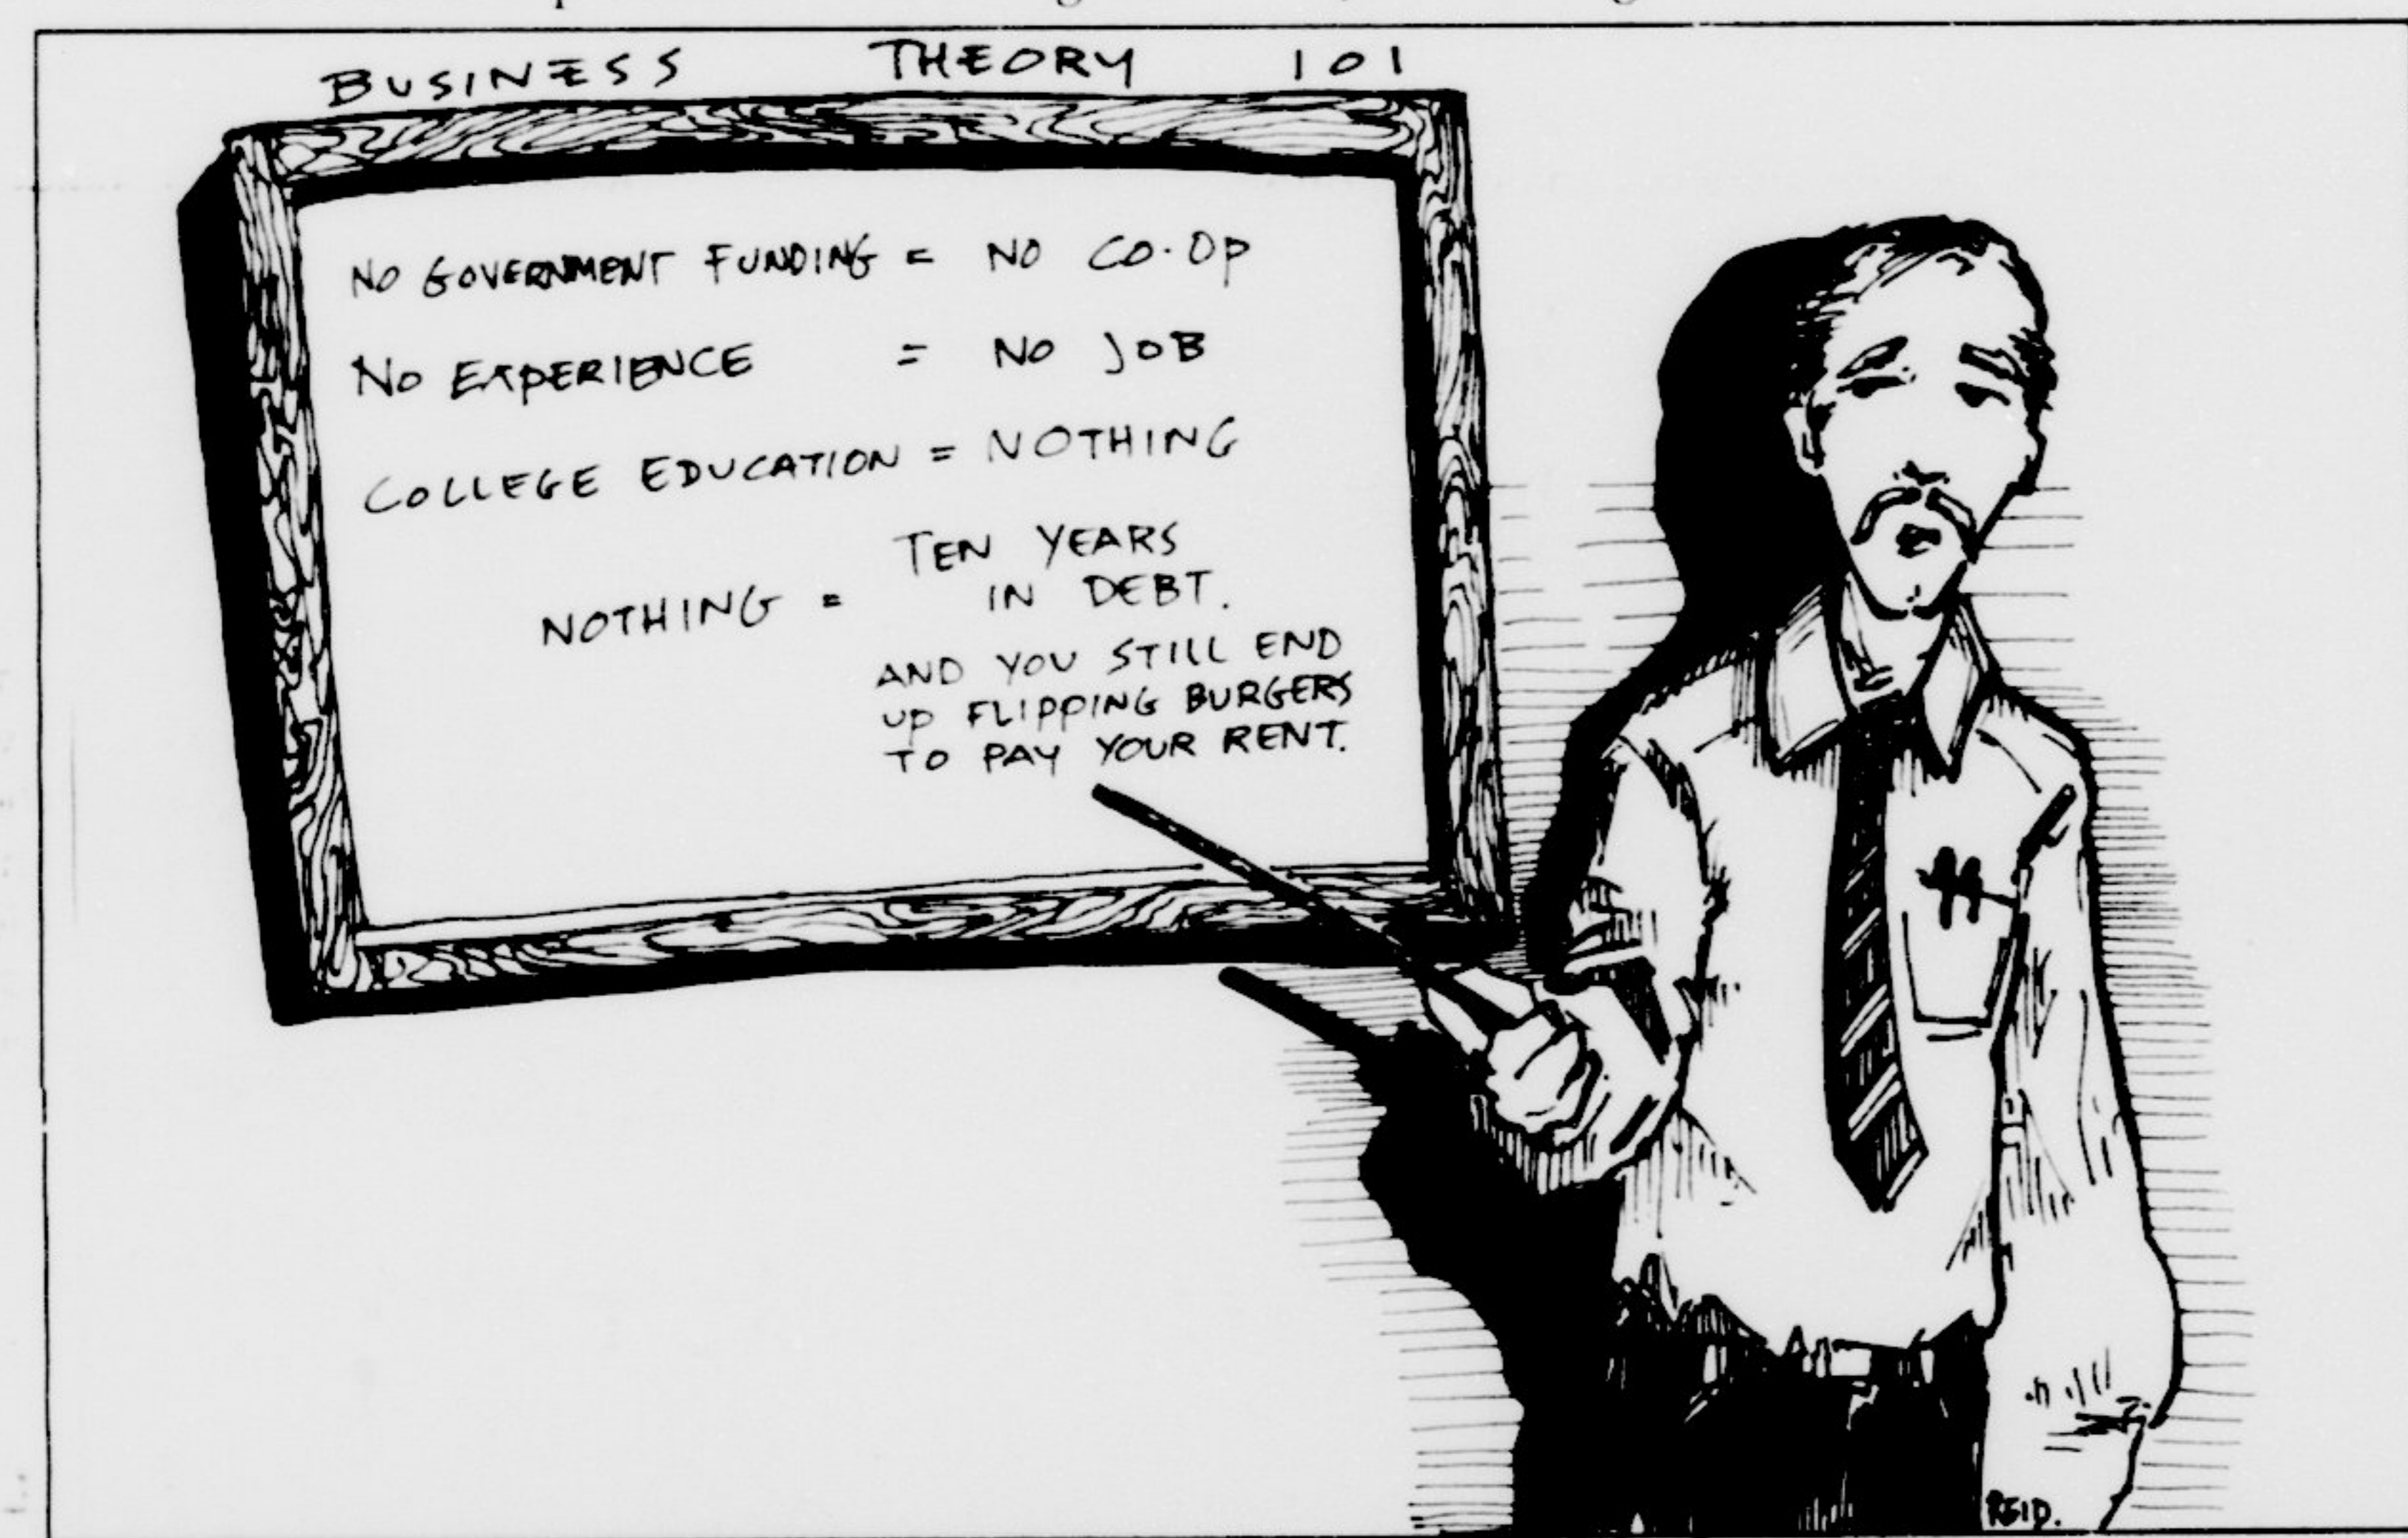 BUSINESS THEORY 101
NO GOVERNMENT FUNDING = NO CO-OP
NO EXPERIENCE = NO JOB
COLLEGE EDUCATION = NOTHING
NOTHING = TEN YEARS
IN DEBT.
AND YOU STILL END
UP FLIPPING BURGERS
TO PAY YOUR RENT.
REID.